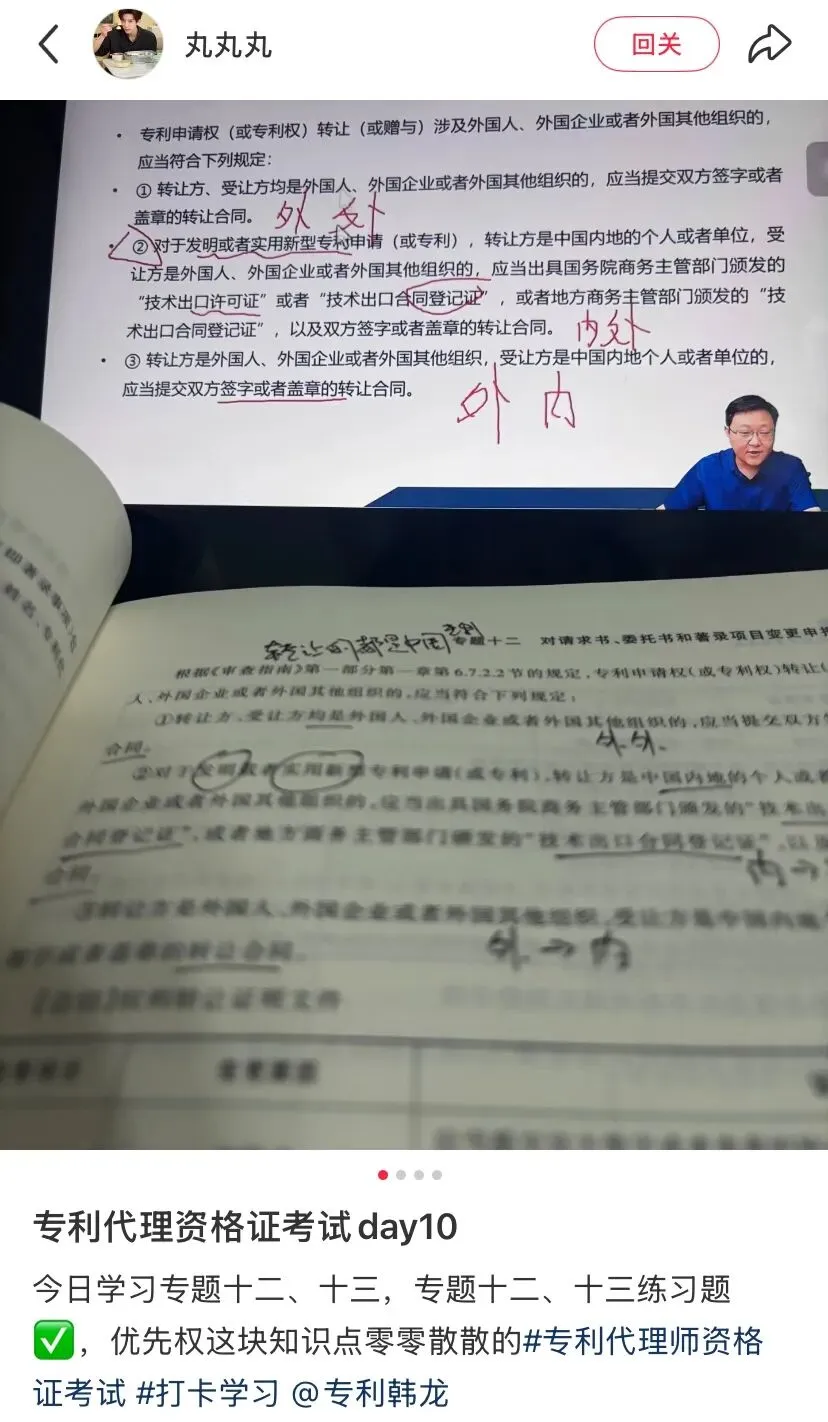 丸丸丸
回关
• 专利申请权（或专利权）转让（或赠与）涉及外国人、外国企业或者外国其他组织的，
应当符合下列规定：
• ① 转让方、受让方均是外国人、外国企业或者外国其他组织的，应当提交双方签字或者
盖章的转让合同。
外 外
• ② 对于发明或者实用新型专利申请（或专利），转让方是中国内地的个人或者单位，受
让方是外国人、外国企业或者外国其他组织的，应当出具国务院商务主管部门颁发的
“技术出口许可证”或者“技术出口合同登记证”，或者地方商务主管部门颁发的“技
术出口合同登记证”，以及双方签字或者盖章的转让合同。
内外
• ③ 转让方是外国人、外国企业或者外国其他组织，受让方是中国内地个人或者单位的，
应当提交双方签字或者盖章的转让合同。
外 内
转让的都是中国专利
专题十二 对请求书、委托书和著录项目变更申报
根据《审查指南》第一部分第一章第6.7.2.2节的规定，专利申请权（或专利权）转让（
人、外国企业或者外国其他组织的，应当符合下列规定：
①转让方、受让方均是外国人、外国企业或者外国其他组织的，应当提交双方
合同。
外.外.
②对于发明或者实用新型专利申请（或专利），转让方是中国内地的个人或者
外国企业或者外国其他组织的，应当出具国务院商务主管部门颁发的“技术出
合同登记证”，或者地方商务主管部门颁发的“技术出口合同登记证”，以及
合同。
内→
③转让方是外国人、外国企业或者外国其他组织，受让方是中国内地
签字或者盖章的转让合同。
外→内
专利代理资格证考试day10
今日学习专题十二、十三，专题十二、十三练习题
✅，优先权这块知识点零零散散的#专利代理师资格
证考试 #打卡学习 @专利韩龙